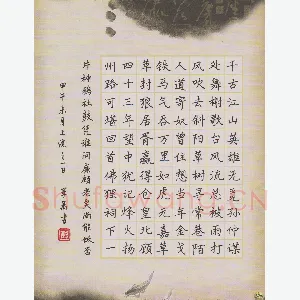 千古江山英雄无觅孙仲谋
处舞榭歌台风流总被雨打
风吹去斜阳草树寻常巷陌
人道寄奴曾住想当年金戈
铁马气吞万里如虎元嘉草
草封狼居胥赢得仓皇北顾
四十三年望中犹记烽火扬
州路可堪回首佛狸祠下一
片神鸦社鼓凭谁问廉颇老矣尚能饭否
甲午末月上浣之一日